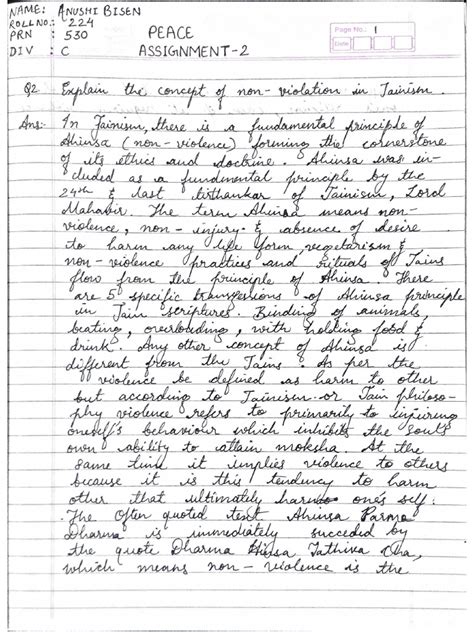 NAME: ANUSHI BISEN
ROLL NO.: 224
PRN : 530
DIV : C
PEACE
ASSIGNMENT-2
Page No. 1
Date
Q2 Explain the concept of non-violation in Jainism.
Ans:- In Jainism, there is a fundamental principle of
Ahinsa (non-violence) forming the cornerstone
of its ethics and doctrine. Ahinsa was in-
cluded as a fundmental principle by the
24th & last tirthankar of Jainism, Lord
Mahavir. The term Ahinsa means non-
violence, non-injury & absence of desire
to harm any life form vegetarism &
non-violence practices and rituals of Jains
flow from the principle of Ahinsa. There
are 5 specific transgressions of Ahinsa principle
in Jain scriptures. Binding of animals,
beating, overloading, with holding food &
drink. Any other concept of Ahinsa is
different from the Jains. As per the
violence be defined as harm to other
but according to Jainism or Jain philoso-
phy violence refers to primarity to injuring
oneself's behaviour which inhibits the soul's
own ability to attain moksha. At the
same time it implies violence to others
because it is this tendency to harm
other that ultimately harms one's self.
The Often quoted text Ahinsa Parma
Dharma is immediately succeded by
the quote Dharma Hinsa Tathiva
which means non-violence is the